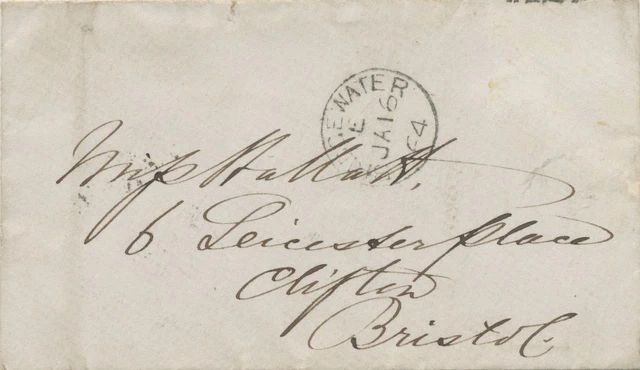 GEWATER
E
JA 16
64
Miss Hallatt,
6 Leicester place
Clifton
Bristol.